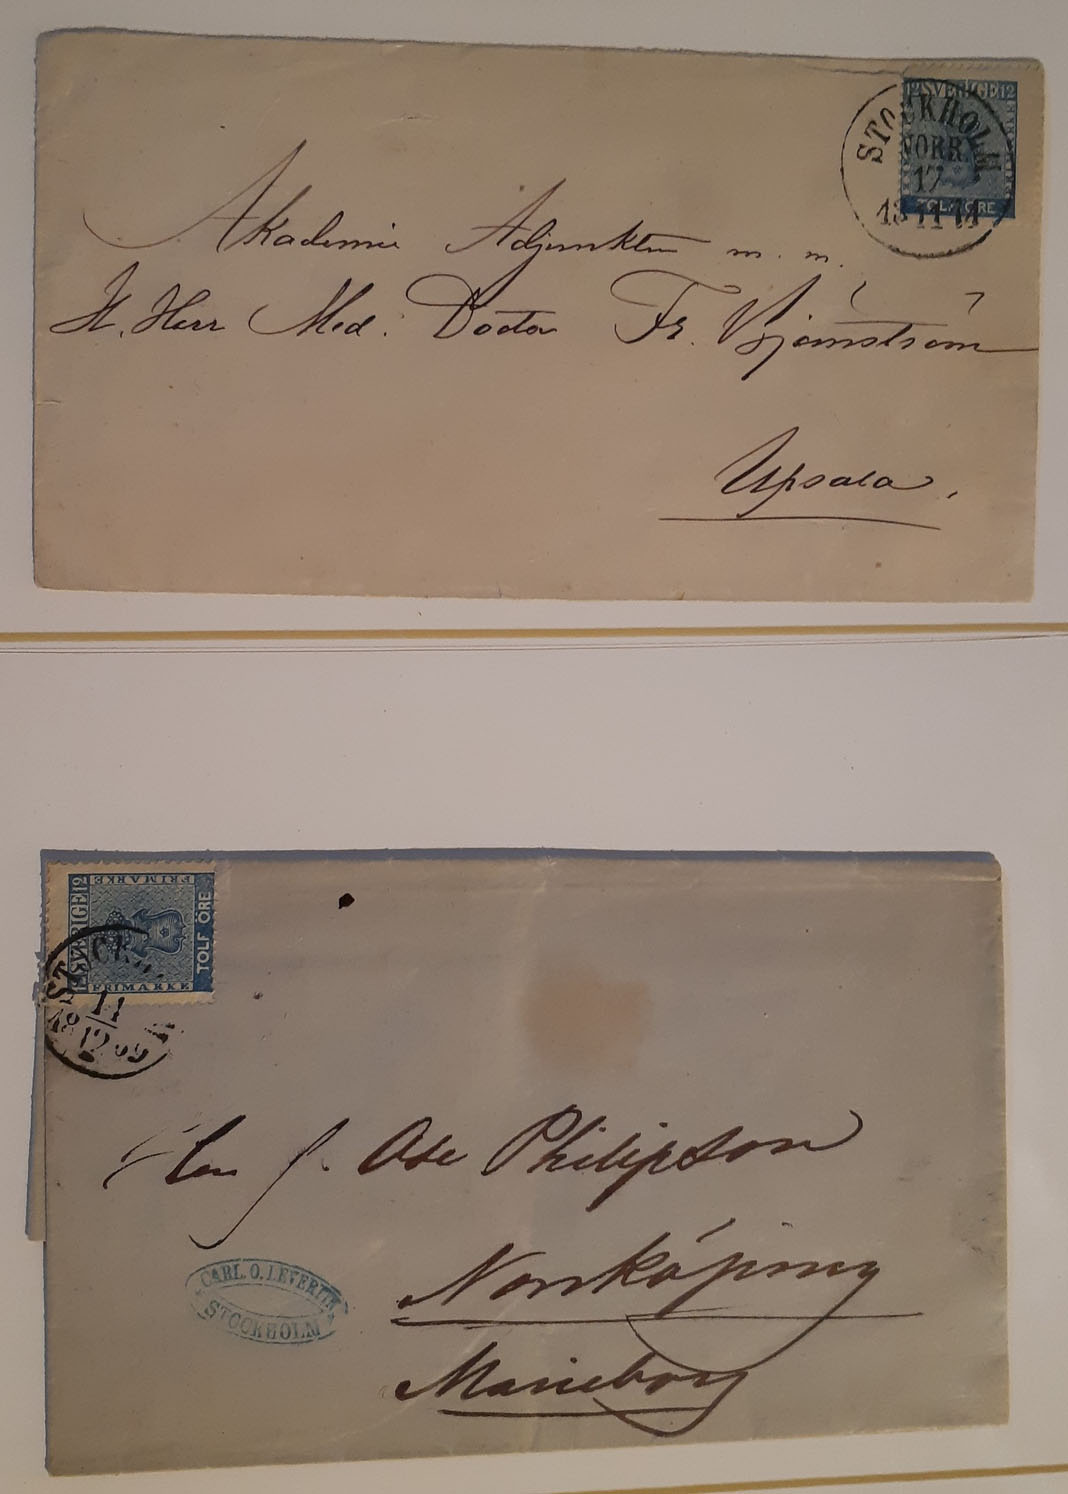 12 SVERIGE 12
TOLF ÖRE
STOCKHOLM
NORR.
17
Akademie Adjunkten m. m.
H. Herr Med. Doctor Fr. Björnström
Upsala.
SVERIGE 12
FRIMÄRKE
FRIMÄRKE
TOLF ÖRE
11
12
Herr J. Ose Philipson
Norrköping
Marieborg
CARL. O. LEVERTIN
STOCKHOLM